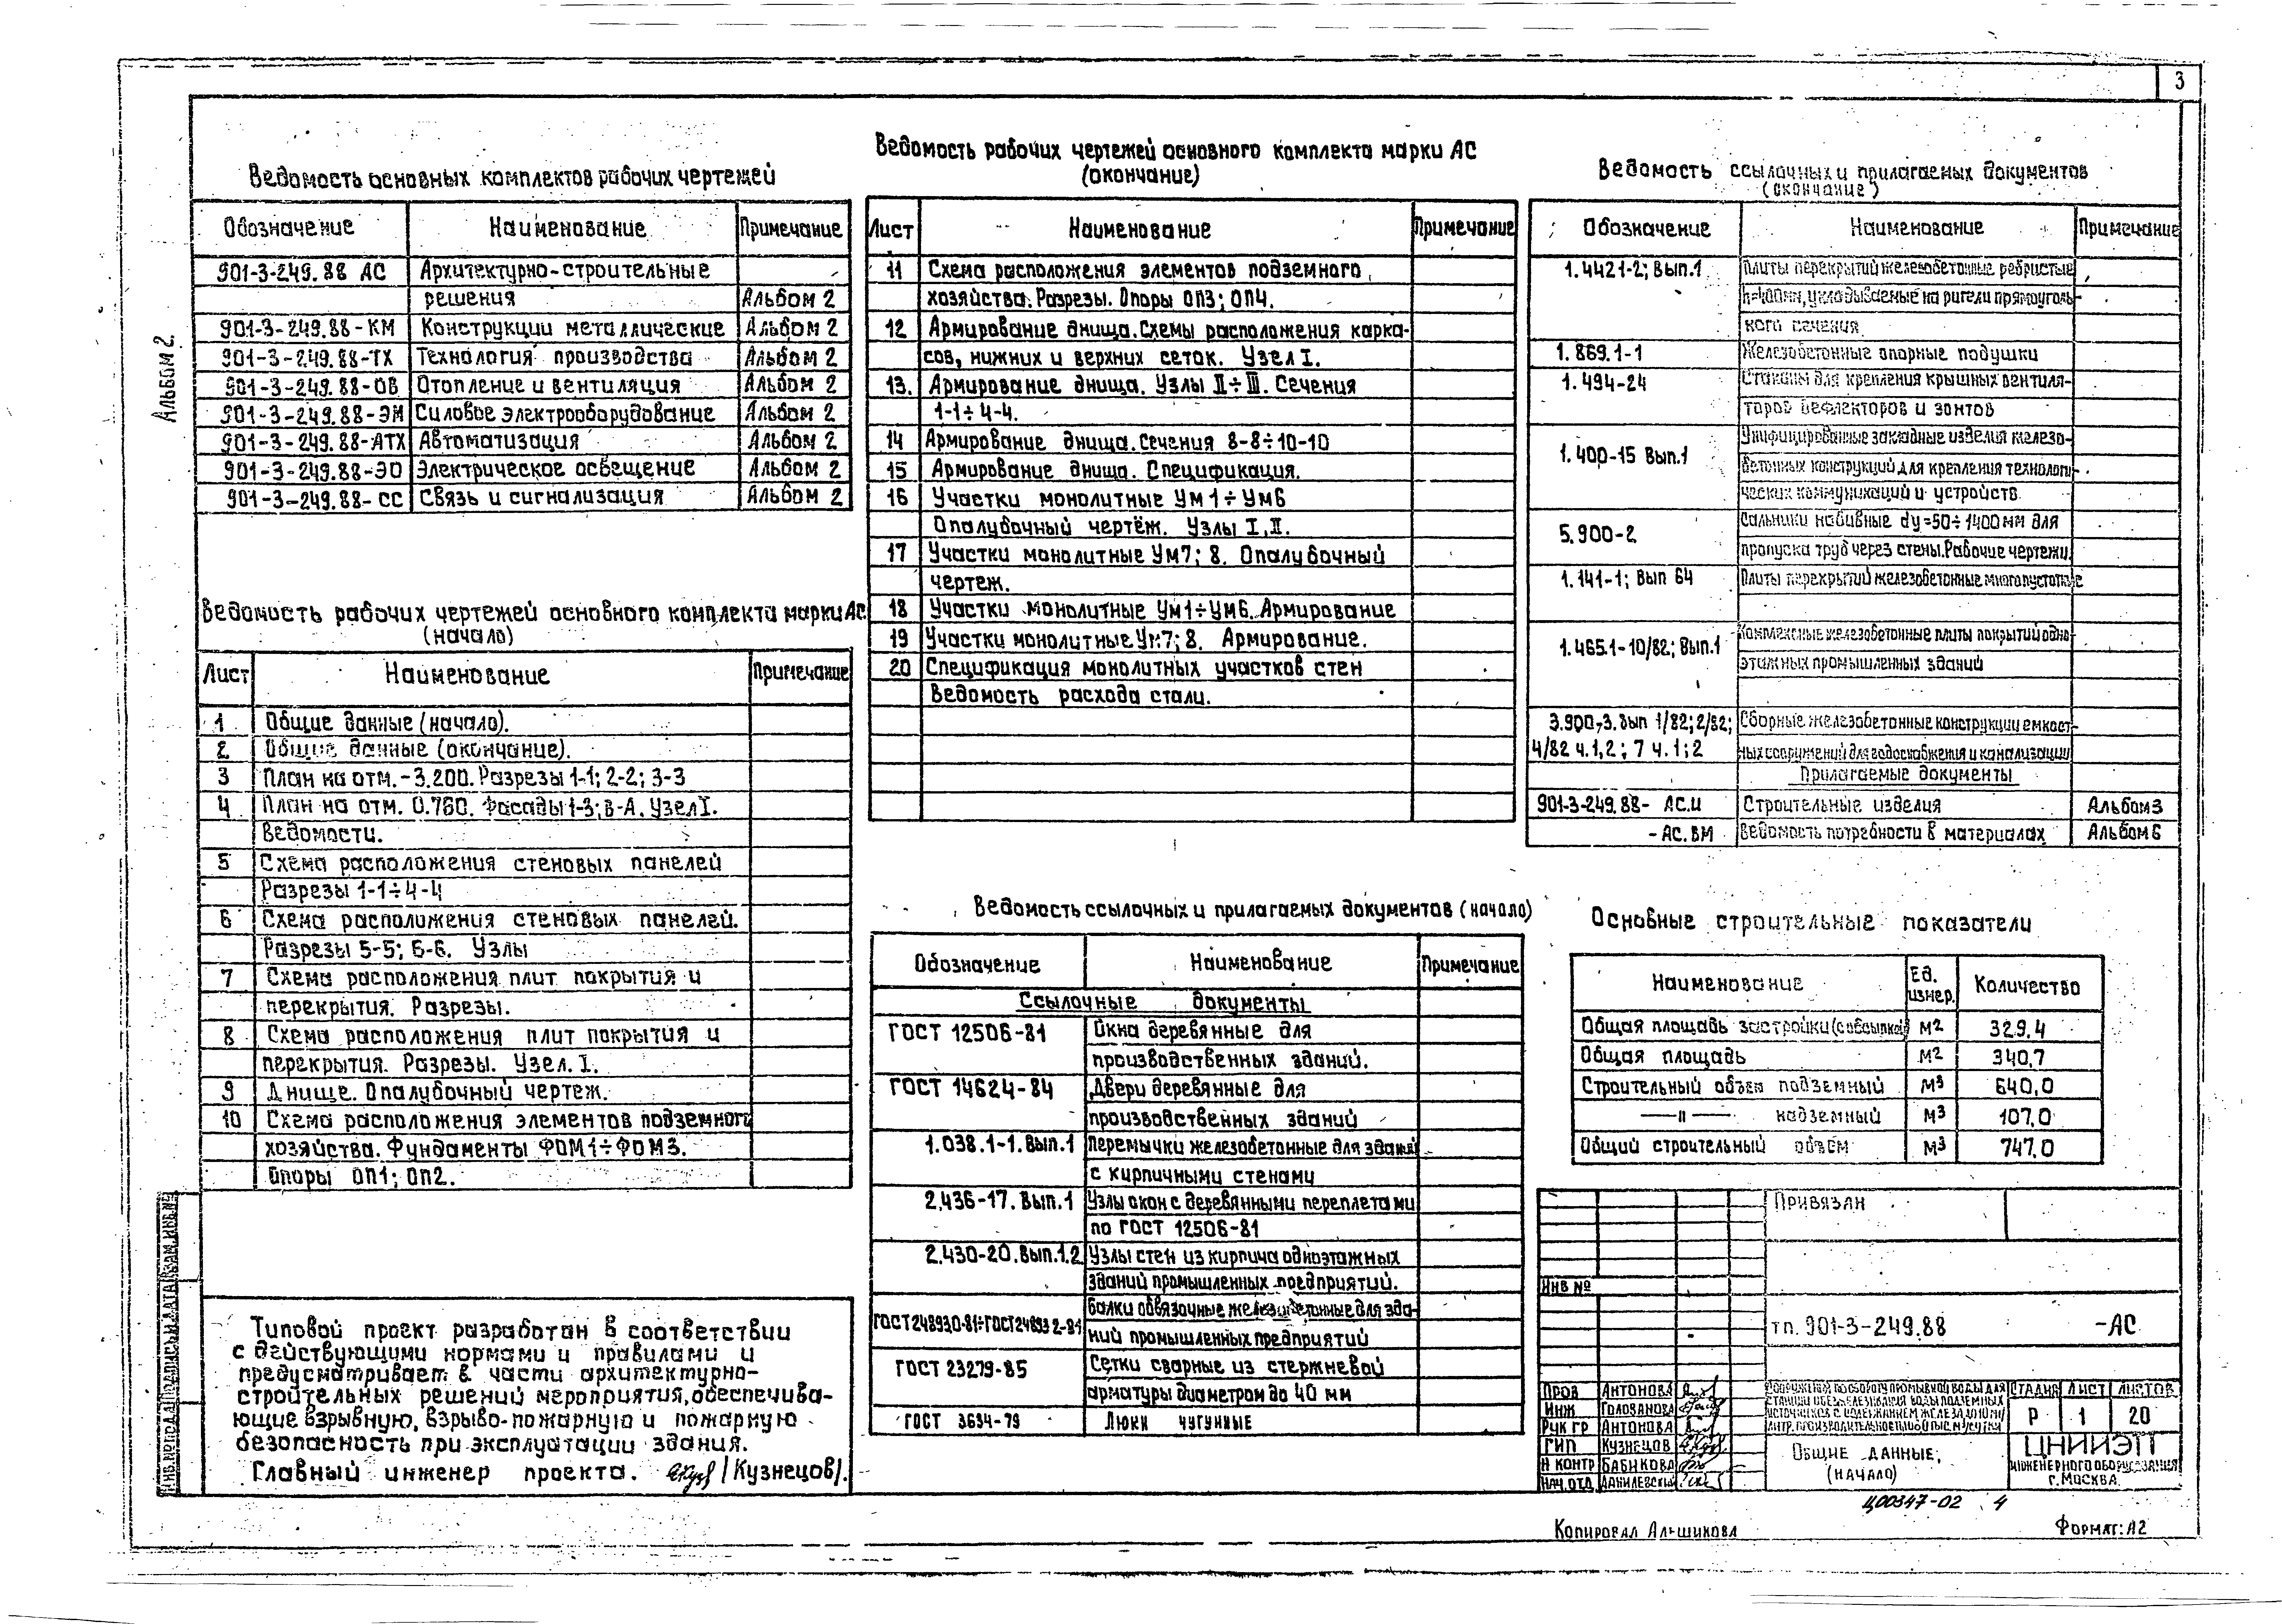 3
Альбом 2.
Ведомость основных комплектов рабочих чертежей
Обозначение Наименование Примечание
901-3-249.88 АС Архитектурно-строительные
решения Альбом 2
901-3-249.88-КМ Конструкции металлические Альбом 2
901-3-249.88-ТХ Технология производства Альбом 2
901-3-249.88-ОВ Отопление и вентиляция Альбом 2
901-3-249.88-ЭМ Силовое электрооборудование Альбом 2
901-3-249.88-АТХ Автоматизация Альбом 2
901-3-249.88-ЭО Электрическое освещение Альбом 2
901-3-249.88-СС Связь и сигнализация Альбом 2
Ведомость рабочих чертежей основного комплекта марки АС
(начало)
Лист Наименование Примечание
1 Общие данные (начало).
2 Общие данные (окончание).
3 План на отм. -3.200. Разрезы 1-1; 2-2; 3-3
4 План на отм. 0.760. Фасады 1-3; В-А. Узел I.
Ведомости.
5 Схема расположения стеновых панелей
Разрезы 1-1÷4-4
6 Схема расположения стеновых панелей.
Разрезы 5-5; 6-6. Узлы
7 Схема расположения плит покрытия и
перекрытия. Разрезы.
8 Схема расположения плит покрытия и
перекрытия. Разрезы. Узел. I.
9 Днище. Опалубочный чертеж.
10 Схема расположения элементов подземного
хозяйства. Фундаменты ФОМ1÷ФОМ3.
Опоры ОП1; ОП2.
Типовой проект разработан в соответствии
с действующими нормами и правилами и
предусматривает в части архитектурно-
строительных решений мероприятия, обеспечива-
ющие взрывную, взрыво-пожарную и пожарную
безопасность при эксплуатации здания.
Главный инженер проекта. /Кузнецов/.
Ведомость рабочих чертежей основного комплекта марки АС
(окончание)
Лист Наименование Примечание
11 Схема расположения элементов подземного
хозяйства. Разрезы. Опоры ОП3; ОП4.
12 Армирование днища. Схемы расположения карка-
сов, нижних и верхних сеток. Узел I.
13. Армирование днища. Узлы II÷III. Сечения
1-1÷4-4.
14 Армирование днища. Сечения 8-8÷10-10
15 Армирование днища. Спецификация.
16 Участки монолитные Ум1÷Ум6
Опалубочный чертёж. Узлы I, II.
17 Участки монолитные Ум7; 8. Опалубочный
чертеж.
18 Участки монолитные Ум1÷Ум6. Армирование
19 Участки монолитные Ум7; 8. Армирование.
20 Спецификация монолитных участков стен
Ведомость расхода стали.
Ведомость ссылочных и прилагаемых документов (начало)
Обозначение Наименование Примечание
Ссылочные документы
ГОСТ 12506-81 Окна деревянные для
производственных зданий.
ГОСТ 14624-84 Двери деревянные для
производственных зданий
1.038.1-1. Вып.1 Перемычки железобетонные для зданий
с кирпичными стенами
2.436-17. Вып.1 Узлы окон с деревянными переплетами
по ГОСТ 12506-81
2.430-20. Вып.1.2 Узлы стен из кирпича одноэтажных
зданий промышленных предприятий.
ГОСТ 24893.0-81÷ГОСТ 24893 2-81 Балки обвязочные железобетонные для зда-
ний промышленных предприятий
ГОСТ 23279-85 Сетки сварные из стержневой
арматуры диаметром до 40 мм
ГОСТ 3634-79 Люки чугунные
Ведомость ссылочных и прилагаемых документов
(окончание)
Обозначение Наименование Примечание
1.4421-2; Вып.1 Плиты перекрытий железобетонные ребристые
h=400мм, укладываемые на ригели прямоуголь-
ного сечения
1.869.1-1 Железобетонные опорные подушки
1.494-24 Стаканы для крепления крышных вентиля-
торов дефлекторов и зонтов
1.400-15 Вып.1 Унифицированные закладные изделия железо-
бетонных конструкций для крепления технологи-
ческих коммуникаций и устройств
5.900-2 Сальники набивные dy=50÷1400мм для
пропуска труб через стены. Рабочие чертежи.
1.141-1; Вып 64 Плиты перекрытий железобетонные многопустотные
1.465.1-10/82; Вып.1 Комплексные железобетонные плиты покрытий одно-
этажных промышленных зданий
3.900-3. Вып 1/82; 2/82; Сборные железобетонные конструкции емкост-
4/82 ч.1,2; 7 ч.1; 2 ных сооружений для водоснабжения и канализации
Прилагаемые документы
901-3-249.88- АС.И Строительные изделия Альбом 3
-АС.ВМ Ведомость потребности в материалах Альбом 6
Основные строительные показатели
Наименование Ед. измер. Количество
Общая площадь застройки (с обсыпкой) м2 329,4
Общая площадь м2 340,7
Строительный объем подземный м3 640,0
—"— надземный м3 107,0
Общий строительный объём м3 747,0
Привязан
Инв №
тп. 901-3-249.88 -АС
Пров Антонова
Инж Голованова
Рук гр Антонова
ГИП Кузнецов
Н контр Бабикова
Нач.отд. Данилевский
Стадия Лист Листов
Р 1 20
Общие данные,
(начало)
ЦНИИЭП
инженерного оборудования
г. Москва.
Ц00347-02 4
Копировал Альшикова
Формат: А2